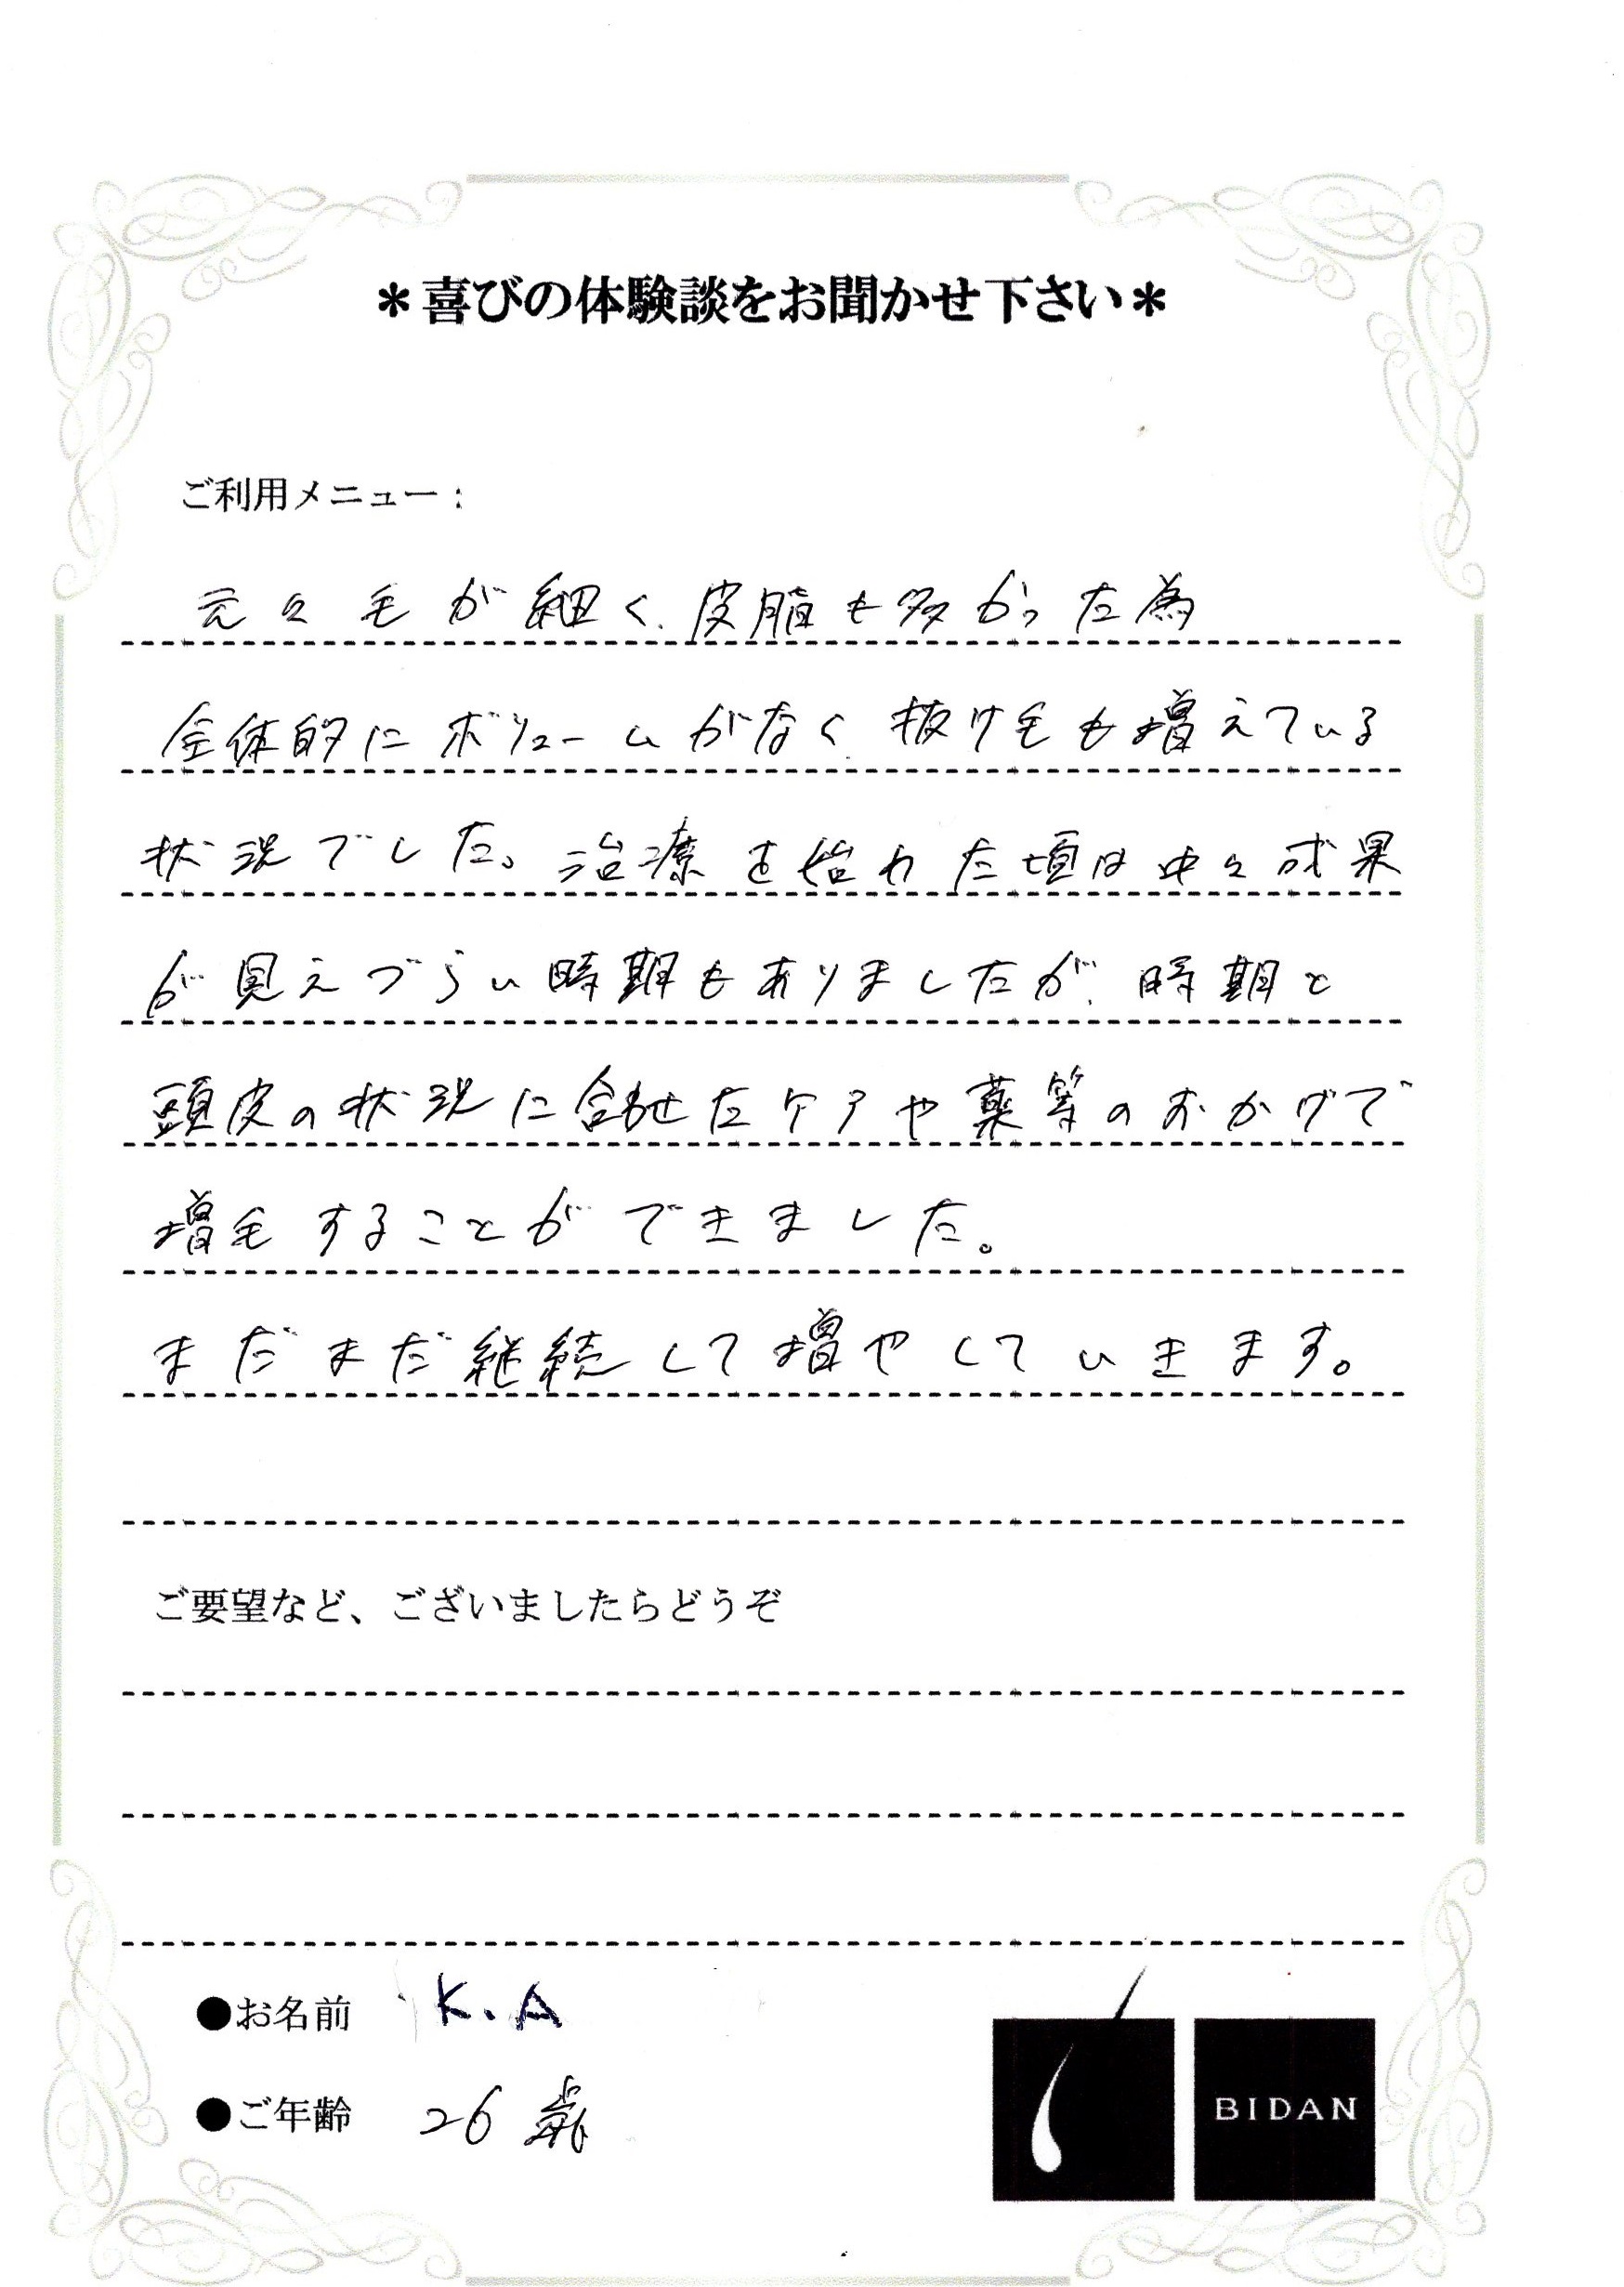 ＊喜びの体験談をお聞かせ下さい＊
ご利用メニュー：
元々毛が細く、皮脂も多かった為
全体的にボリュームがなく、抜け毛も増えている
状況でした。治療を始めた頃は中々成果
が見えづらい時期もありましたが、時期と
頭皮の状況に合わせたケアや薬等のおかげで
増毛することができました。
まだまだ継続して増やしていきます。
ご要望など、ございましたらどうぞ
●お名前 K.A
●ご年齢 26歳
BIDAN